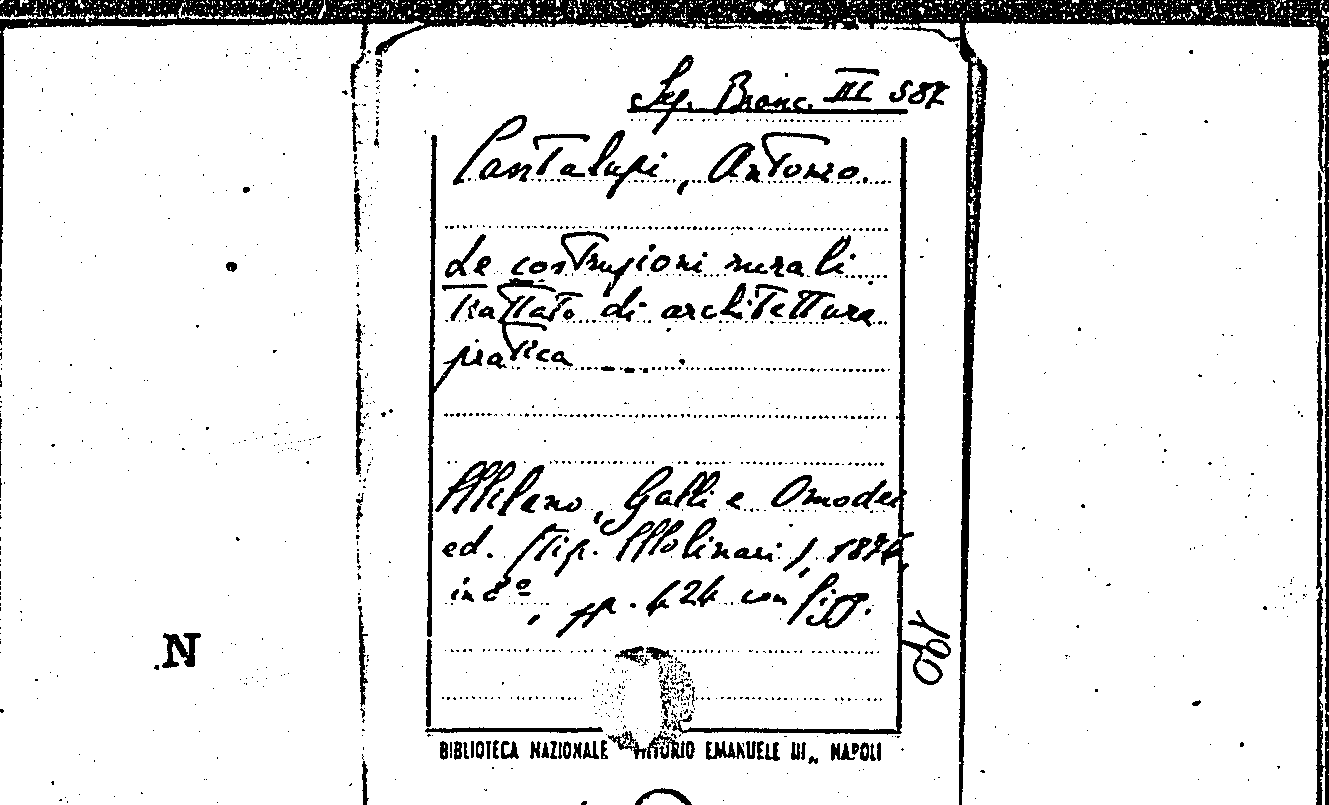 Seg. Branc. III S87
Cantalupi, Antonio.
Le costruzioni rurali
Trattato di architettura
pratica ......
Milano, Galli e Omodei
ed. (tip. Molinari), 1876,
in 8º, pp. 424 con figg.
N
BIBLIOTECA NAZIONALE VITTORIO EMANUELE III„ NAPOLI